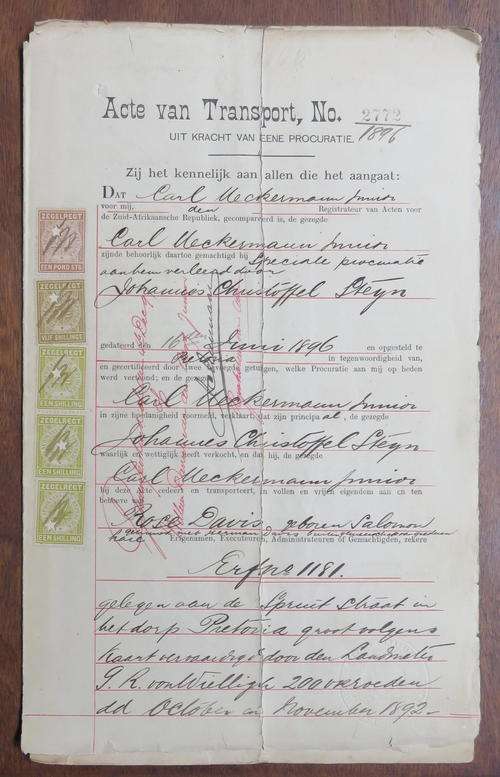 Acte van Transport, No. 2772
1896
UIT KRACHT VAN EENE PROCURATIE.
Zij het kennelijk aan allen die het aangaat:
DAT Carl Ueckermann junior
voor mij, den Registrateur van Acten voor
de Zuid-Afrikaansche Republiek, gecompareerd is, de gezegde
Carl Ueckermann junior
zijnde behoorlijk daartoe gemachtigd bij Speciale procuratie
aan hem verleend door
Johannes Christoffel Steyn
gedateerd den 16 Juni 1896 en opgesteld te
Pretoria in tegenwoordigheid van,
en gecertificeerd door twee bevoegde getuigen, welke Procuratie aan mij op heden
werd vertoond; en de gezegde
Carl Ueckermann junior
in zijne hoedanigheid voormeld, verklaart dat zijn principaal, de gezegde
Johannes Christoffel Steyn
waarlijk en wettiglijk heeft verkocht, en dat hij, de gezegde
Carl Ueckermann junior
bij deze akte cedeert en transporteert, in vollen en vrijen eigendom aan en ten
behoeve van
Davis geboren Salomon
haar Erfgenamen, Executeuren, Administrateuren of Gemachtigden, zekere
Erf no 1181.
gelegen aan de Spruit straat in
het dorp Pretoria groot volgens
Kaart vervaardigd door den Landmeter
G. R. von Wielligh 200 vk roeden
dd October en November 1892
ZEGELREGT
EEN POND STG
ZEGELREGT
VIJF SHILLINGS
ZEGELREGT
EEN SHILLING
ZEGELREGT
EEN SHILLING
ZEGELREGT
EEN SHILLING